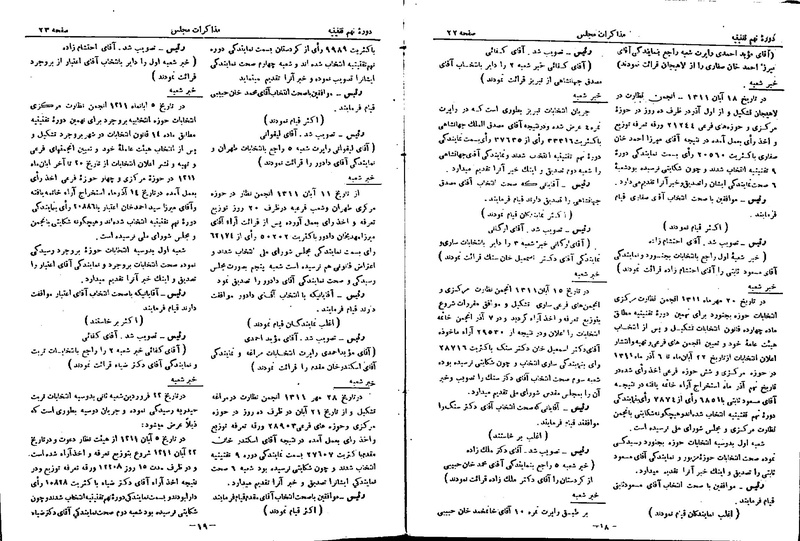 دورهٔ نهم تقنینیه
مذاکرات مجلس
صفحه ۲۲
(آقای مؤید احمدی راپرت شعبه راجع بنمایندگی آقای
میرزا احمد خان صفاری را از لاهیجان قرائت نمودند)
خبر شعبه
در تاریخ ۱۸ آبان ۱۳۱۱ - انجمن نظارت حوزه
لاهیجان تشکیل و از اول آذر در ظرف ده روز در حوزه
مرکزی و حوزه‌های فرعی ۲۱۲۴۴ ورقه تعرفه توزیع
و اخذ رأی بعمل آمده در نتیجه آقای میرزا احمد خان
صفاری باکثریت ۲۰۵۶۰ رأی بسمت نمایندگی دوره
۹ تقنینیه انتخاب شدند و چون شکایتی نرسیده بود شعبهٔ
۶ صحت نمایندگی ایشان را تصدیق و خبر آنرا تقدیم میدارد.
رئیس - موافقین با صحت انتخاب آقای صفاری قیام
فرمایند.
(اکثر قیام نمودند)
رئیس - تصویب شد. آقای احتشام زاده
(خبر شعبهٔ اول راجع بانتخابات بجنورد و نمایندگی
آقای مسعود ثابتی را آقای احتشام زاده قرائت نمودند)
خبر شعبه
در تاریخ ۲۰ مهرماه ۱۳۱۱ انجمن نظارت مرکزی
انتخابات حوزه بجنورد برای نهمین دورهٔ تقنینیه مطابق
ماده چهارده قانون انتخابات تشکیل و پس از انتخاب
هیئت عامله خود و تعیین انجمن های فرعی و تهیه و انتشار
اعلان انتخابات از تاریخ ۲۲ آبان‌ماه تا ۶ آذر ماه ۱۳۱۱
در حوزه مرکزی و شش حوزه فرعی اخذ رأی شده در
تاریخ نهم آذر ماه استخراج آراء خاتمه یافته در نتیجه
آقای مسعود ثابتی با ۷۸۵۱ رأی از ۷۸۷۴ رأی بنمایندگی
دورهٔ نهم تقنینیه انتخاب شده‌اند و هیچگونه شکایتی بانجمن
نظارت مرکزی و مجلس شورای ملی نرسیده است.
شعبه اول بدوسیه انتخابات حوزه بجنورد رسیدگی
نموده صحت انتخابات حوزه مزبور و نمایندگی آقای مسعود
ثابتی را تصدیق و اینك خبر آنرا تقدیم میدارد.
رئیس - موافقین با صحت انتخاب آقای مسعود ثابتی
قیام فرمایند.
(اغلب نمایندگان قیام نمودند)
رئیس - تصویب شد. آقای کفائی
(آقای کفائی خبر شعبه ۲ را دایر بانتخاب آقای
مصدق جهانشاهی از تبریز قرائت نمودند)
خبر شعبه
جریان انتخابات تبریز بطوری است که در راپرت
نمره ۴ عرض شده و در نتیجه آقای مصدق الملك جهانشاهی
باکثریت ۳۳۹۶۶ رأی از ۳۷۶۳۵ رأی بسمت نمایندگی
دورهٔ نهم تقنینیه انتخاب شدند و نمایندگی آقای جهانشاهی
را شعبه دوم تصدیق و اینك خبر آنرا تقدیم میدارد.
رئیس - آقایانی که صحت انتخاب آقای مصدق
جهانشاهی را تصدیق دارند قیام فرمایند.
(اکثر نمایندگان قیام نمودند)
رئیس - تصویب شد. آقای ارگانی
(آقای ارگانی خبر شعبه ۳ را دایر بانتخابات ساری و
نمایندگی آقای دکتر اسمعیل خان سنك قرائت نمودند)
خبر شعبه
در تاریخ ۱۵ آبان ۱۳۱۱ انجمن نظارت مرکزی و
انجمن‌های فرعی ساری تشکیل و موافق مقررات شروع
بتوزیع تعرفه و اخذ آراء کردید و در ۷ آذر انجمن خاتمه
انتخابات را اعلان و در نتیجه از ۲۹۵۳۰ آراء ماخوذه
آقای دکتر اسمعیل خان دکتر سنك باکثریت ۲۸۷۱۶
رأی بنمایندگی ساری انتخاب و چون شکایتی نرسیده بوده
شعبه سوم صحت انتخاب آقای دکتر سنك را تصویب و خبر
آن را بمجلس مقدس شورای ملی تقدیم میدارد.
رئیس - آقایانی که صحت انتخاب آقای دکتر سنك را
موافقند قیام فرمایند.
(اغلب بر خاستند)
رئیس - تصویب شد. آقای دکتر ملك زاده
(خبر شعبه ۵ راجع بنمایندگی آقای محمد خان حبیبی
از کردستان را آقای دکتر ملك زاده قرائت نمودند)
خبر شعبه
بر طبق راپرت نمره ۱۰ آقای خانمحمد خان حبیبی
-۱۸-
دورهٔ نهم تقنینیه
مذاکرات مجلس
صفحه ۲۳
باکثریت ۹۹۸۹ رأی از کردستان بسمت نمایندگی دوره
نهم تقنینیه انتخاب شده اند و شعبه چهارم صحت نمایندگی
ایشان را تصویب و خبر آنرا تقدیم مینماید
رئیس - موافقین با صحت انتخاب آقای محمد خان حبیبی
قیام فرمایند.
(اکثر قیام نمودند)
رئیس - تصویب شد. آقای لیقوانی
(آقای لیقوانی راپرت شعبه ۵ راجع بانتخابات طهران و
نمایندگی آقای دادور را قرائت نمودند)
خبر شعبه
از تاریخ ۱۱ آبان ۱۳۱۱ انجمن نظار در حوزه
مرکزی طهران و شعب فرعیه در ظرف ۲۰ روز توزیع
تعرفه و اخذ رأی بعمل آورده پس از قرائت آراء آقای
میرزا مهدیخان دادور باکثریت ۵۰۲۰۲ رأی از ۶۲۱۷۴
رأی بسمت نمایندگی مجلس شورای ملی انتخاب شدند و
اعتراض قانونی هم نرسیده است شعبه پنجم بصورت مجلس
رسیدگی و صحت نمایندگی آقای دادور را تصدیق نمود
رئیس - آقایانیکه با انتخاب آقای دادور موافقت
دارند قیام فرمایند.
(اغلب نمایندگان قیام نمودند)
رئیس - تصویب شد. آقای مؤید احمدی
(آقای مؤید احمدی راپرت انتخابات مراغه و نمایندگی
آقای اسکندر خان مقدم را قرائت نمودند)
خبر شعبه
در تاریخ ۲۸ مهر ۱۳۱۱ انجمن نظارت در مراغه
تشکیل و از تاریخ ۲۱ آبان در ظرف ده روز در حوزه
مرکزی و حوزه های فرعی ۲۸۹۰۳ ورقه تعرفه توزیع
و اخذ رأی بعمل آمده در نتیجه آقای اسکندر خان
مقدم باکثریت ۲۷۱۰۷ بنمایندگی دوره ۹ تقنینیه
انتخاب شدند و چون شکایتی نرسیده بود شعبه ۶ صحت
نمایندگی ایشان را تصدیق و خبر آنرا تقدیم میدارد.
رئیس - موافقین با صحت انتخاب آقای مقدم قیام فرمایند
(اکثر قیام نمودند)
رئیس - تصویب شد. آقای احتشام زاده
(خبر شعبه اول را دایر بانتخاب آقای اعتبار از بروجرد
قرائت نمودند)
خبر شعبه
در تاریخ ۵ آبانماه ۱۳۱۱ انجمن نظارت مرکزی
انتخابات حوزه انتخابیه بروجرد برای نهمین دورهٔ تقنینیه
مطابق ماده ۱۴ قانون انتخابات در شهر بروجرد تشکیل و
پس از انتخاب هیئت عاملهٔ خود و تعیین انجمنهای فرعی
و تهیه و نشر اعلان انتخابات از تاریخ ۲۰ تا آخر آبان‌ماه
۱۳۱۱ در حوزهٔ مرکزی و چهار حوزهٔ فرعی اخذ رأی
بعمل آمده در تاریخ ۱۴ آذرماه استخراج آراء خاتمه یافته
و آقای میرزا سید احمد خان اعتبار با ۱۰۸۸۶ رأی بنمایندگی
دورهٔ نهم تقنینیه انتخاب شده‌اند و هیچگونه شکایتی بانجمن
و مجلس شورای ملی نرسیده است.
شعبه اول بدوسیه انتخابات حوزهٔ بروجرد رسیدگی
نموده صحت انتخابات بروجرد و نمایندگی آقای اعتبار را
تصدیق و اینك خبر آنرا تقدیم میدارد.
رئیس - آقایانیکه با صحت انتخاب آقای اعتبار موافقت
دارند قیام فرمایند
(اکثر بر خاستند)
رئیس - تصویب شد. آقای کفائی
(آقای کفائی خبر شعبه ۲ را راجع بانتخابات تربت
و نمایندگی آقای دکتر ضیاء قرائت نمودند)
خبر شعبه
در تاریخ ۲۲ فروردین شعبه ثانی بدوسیه انتخابات تربت
حیدریه رسیدگی نموده و جریان دوسیه بطوری است که
ذیلاً عرض میشود:
در تاریخ ۵ آبان ۱۳۱۱ از هیئت نظار دعوت و در تاریخ
۲۲ آبان ۱۳۱۱ شروع بتوزیع تعرفه و اخذ آراء شده است.
و در ظرف مدت ۱۵ روز ۱۲۲۰۸ ورقه تعرفه توزیع و در
نتیجه اخذ آراء آقای دکتر ضیاء باکثریت ۱۰۸۲۸ رأی
دارا بودند و بسمت نمایندگی دورهٔ نهم تقنینیه انتخاب شدند و چون
شکایتی نرسیده بود شعبه دوم صحت نمایندگی آقای دکتر ضیاء
-۱۹-